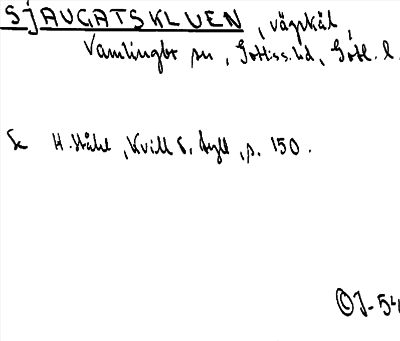 SjAUGATSKLUEN, vägskäl,
Vamlingbo sn, Gotl. l.
Se H. Ståhl, Kvill o. , s. 150.
OJ-54